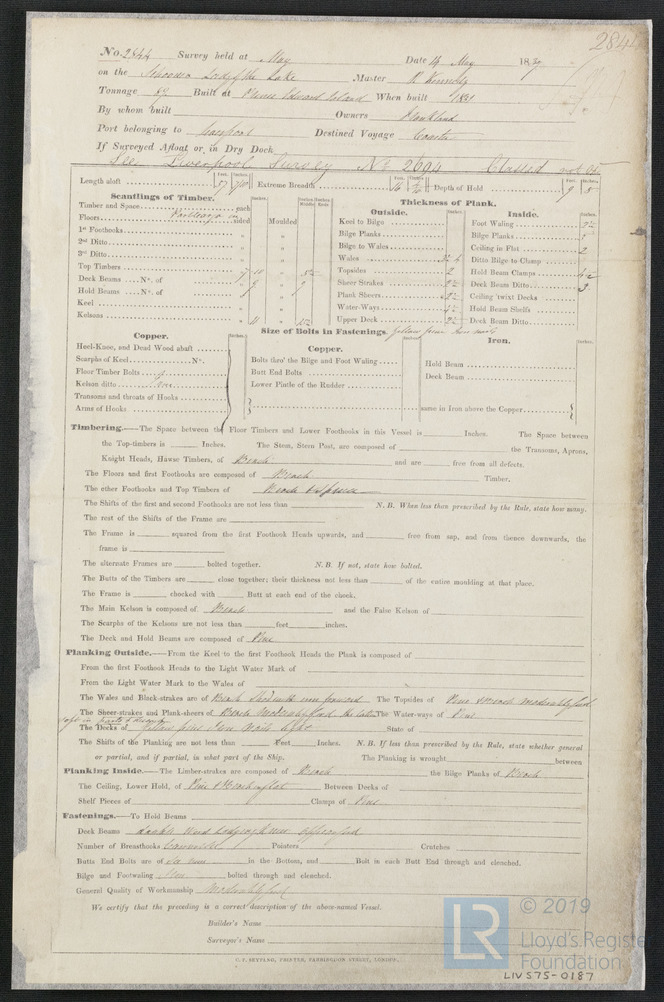 2844
No. 2844 Survey held at May Date 14 May 1837
on the Schooner Lady of the Lake Master R Kennedy
Tonnage 67 Built at Prince Edward Island When built 1831
By whom built Owners
Port belonging to Liverpool Destined Voyage Coaster
If Surveyed Afloat or in Dry Dock
See Liverpool Survey No 2694. Classed
Length aloft Feet. Inches. Extreme Breadth Feet. Inches. Depth of Hold Feet. 9 Inches. 8
Scantlings of Timber.
Timber and Space each
Floors sided Moulded
1st Foothooks
2nd Ditto
3rd Ditto
Top Timbers
Deck Beams No. of
Hold Beams No. of 9 9
Keel
Kelsons 11
Thickness of Plank.
Outside.
Keel to Bilge
Bilge Planks
Bilge to Wales
Wales
Topsides 2
Sheer Strakes
Plank Sheers
Water-Ways
Upper Deck
Inside. Inches.
Foot Waling
Bilge Planks
Ceiling in Flat 2
Ditto Bilge to Clamp
Hold Beam Clamps
Deck Beams Ditto 3
Ceiling 'twixt Decks
Hold Beam Shelfs
Deck Beam Ditto
Size of Bolts in Fastenings.
Copper. Inches.
Heel-Knee, and Dead Wood abaft
Scarphs of Keel No.
Floor Timber Bolts
Kelson ditto Iron
Transoms and throats of Hooks
Arms of Hooks
Copper. Inches.
Bolts thro' the Bilge and Foot Waling
Butt End Bolts
Lower Pintle of the Rudder
Iron. Inches.
Hold Beam
Deck Beam
same in Iron above the Copper
Timbering.—The Space between the Floor Timbers and Lower Foothooks in this Vessel is Inches. The Space between
the Top-timbers is Inches. The Stem, Stern Post, are composed of the Transoms, Aprons,
Knight Heads, Hawse Timbers, of Beech and are free from all defects.
The Floors and first Foothooks are composed of Beech Timber.
The other Foothooks and Top Timbers of Beech & Spruce
The Shifts of the first and second Foothooks are not less than N.B. When less than prescribed by the Rule, state how many.
The rest of the Shifts of the Frame are
The Frame is squared from the first Foothook Heads upwards, and free from sap, and from thence downwards, the
frame is
The alternate Frames are bolted together. N.B. If not, state how bolted.
The Butts of the Timbers are close together; their thickness not less than of the entire moulding at that place.
The Frame is chocked with Butt at each end of the chock.
The Main Kelson is composed of Beech and the False Kelson of
The Scarphs of the Kelsons are not less than feet inches.
The Deck and Hold Beams are composed of Pine
Planking Outside.—From the Keel to the first Foothook Heads the Plank is composed of
From the first Foothook Heads to the Light Water Mark of
From the Light Water Mark to the Wales of
The Wales and Black-strakes are of Beech The Topsides of Pine & Beech moderately good
The Sheer-strakes and Plank-sheers of Beech Moderately good the latter The Water-ways of Pine
soft in parts
The Decks of Yellow pine Iron Nails State of
The Shifts of the Planking are not less than Feet Inches. N.B. If less than prescribed by the Rule, state whether general
or partial, and if partial, in what part of the Ship. The Planking is wrought between
Planking Inside.—The Limber-strakes are composed of Beech the Bilge Planks of Beech
The Ceiling, Lower Hold, of Pine & Beech in flat Between Decks of
Shelf Pieces of Clamps of Pine
Fastenings.—To Hold Beams
Deck Beams double wood Lodging knees
Number of Breasthooks Pointers Crutches
Butts End Bolts are of in the Bottom, and Bolt in each Butt End through and clenched.
Bilge and Footwaling Iron bolted through and clenched.
General Quality of Workmanship Moderately good
We certify that the preceding is a correct description of the above-named Vessel.
Builder's Name
Surveyor's Name
C. F. SEYFANG, PRINTER, FARRINGDON STREET, LONDON.
LR
© 2019
Lloyd's Register
Foundation
LIVS75-0187